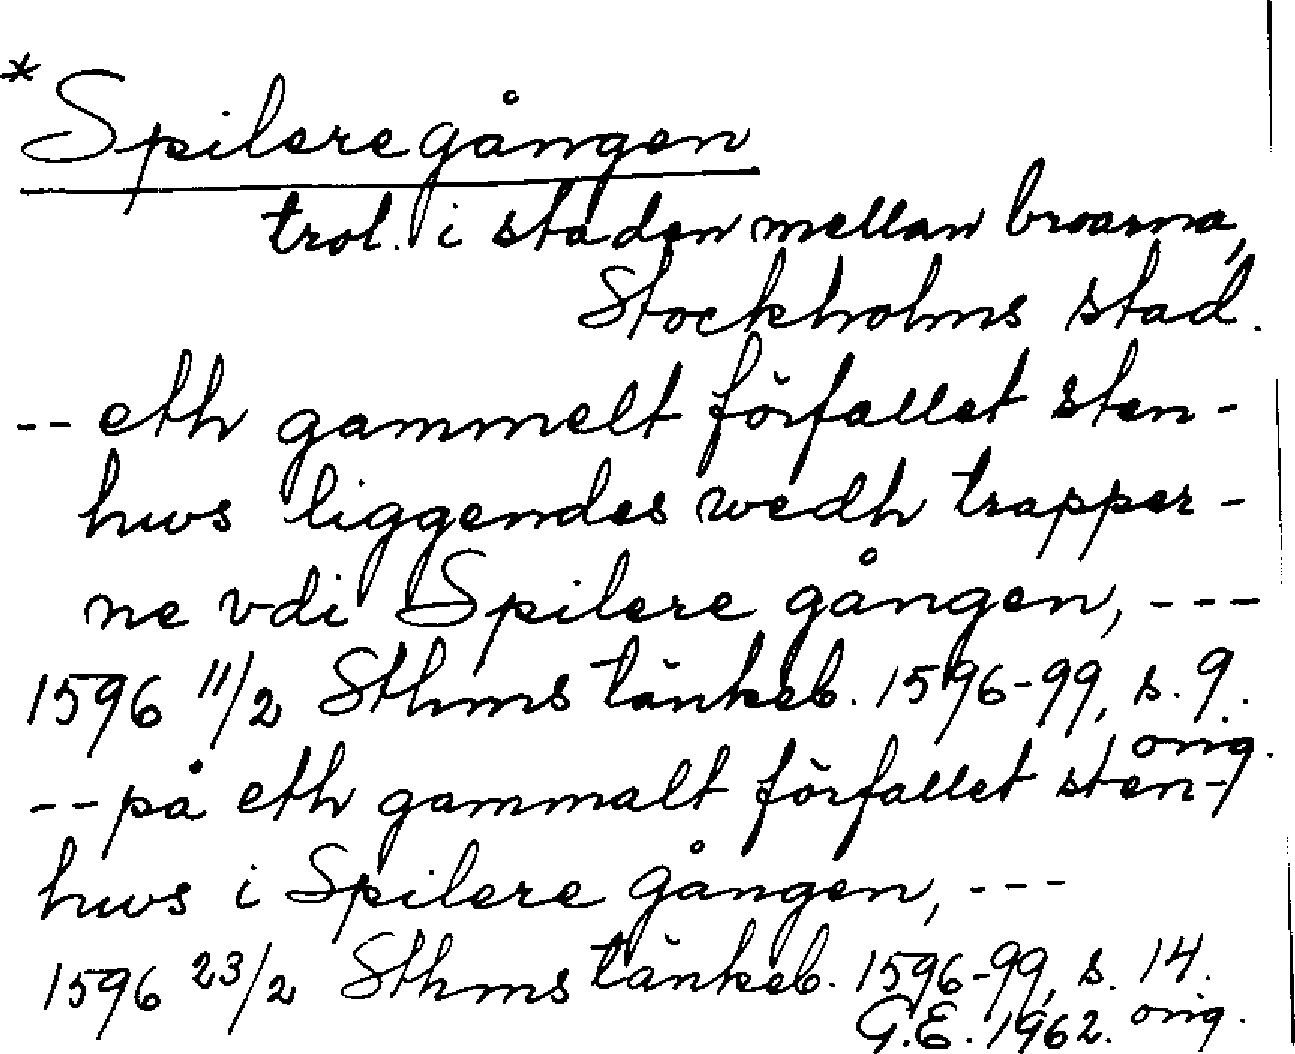 *Spileregången
trol. i staden mellan broarna,
Stockholms stad.
-- eth gammelt förfallet sten-
hws liggendes wedh trapper-
ne vdi Spilere gången, ---
1596 11/2 Sthms tänkeb. 1596-99, s. 9.
orig.
-- på eth gammalt förfallet sten-
hws i Spilere gången, ---
1596 23/2 Sthms tänkeb. 1596-99, s. 14.
G.E. 1962. orig.